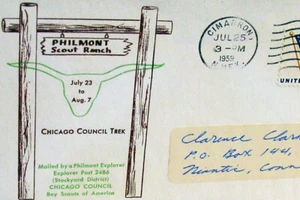 PHILMONT
Scout Ranch
July 23
to
Aug. 7
CHICAGO COUNCIL TREK
Mailed by a Philmont Explorer
Explorer Post 2486
(Stockyard District)
CHICAGO COUNCIL
Boy Scouts of America
CIMARRON
JUL 25
3-PM
1959
N.MEX.
UNITED
Clarence Clark
P.O. Box 144,
Niantic, Conn